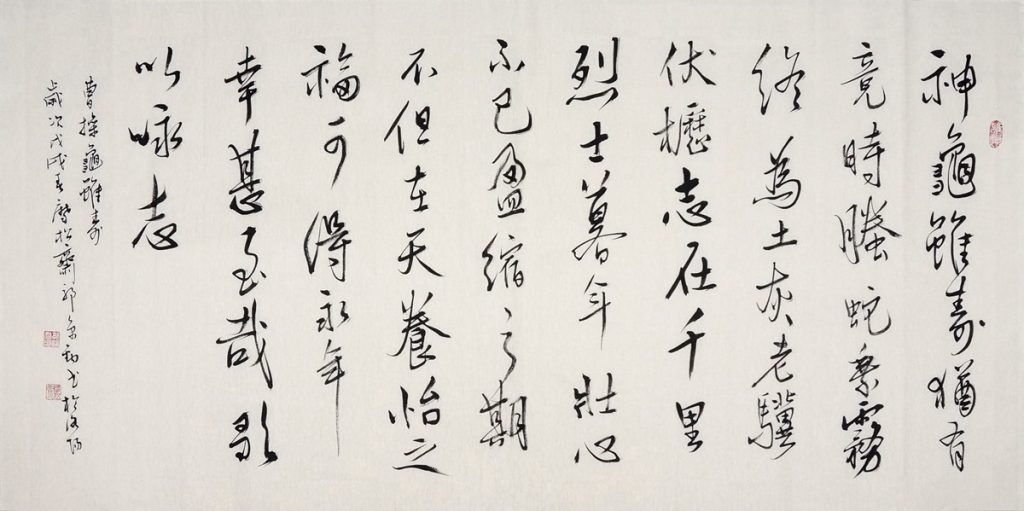 神龜雖壽猶有
竟時螣蛇乘霧
終為土灰老驥
伏櫪志在千里
烈士暮年壯心
不已盈縮之期
不但在天養怡之
福可得永年
幸甚至哉歌
以咏志
曹操龜雖壽
歲次戊戌春松齋書於洛陽